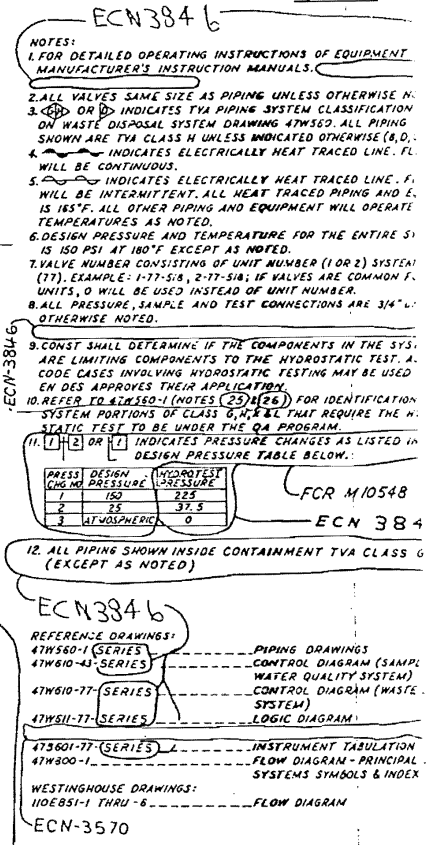 ECN3846
NOTES:
1. FOR DETAILED OPERATING INSTRUCTIONS OF EQUIPMENT
MANUFACTURER'S INSTRUCTION MANUALS.
2. ALL VALVES SAME SIZE AS PIPING UNLESS OTHERWISE
3. OR INDICATES TVA PIPING SYSTEM CLASSIFICATION
ON WASTE DISPOSAL SYSTEM DRAWING 47W560. ALL PIPING
SHOWN ARE TVA CLASS H UNLESS INDICATED OTHERWISE (B,D,
4. INDICATES ELECTRICALLY HEAT TRACED LINE. FL
WILL BE CONTINUOUS.
5. INDICATES ELECTRICALLY HEAT TRACED LINE. F
WILL BE INTERMITTENT. ALL HEAT TRACED PIPING AND E
IS 165°F. ALL OTHER PIPING AND EQUIPMENT WILL OPERATE
TEMPERATURES AS NOTED.
6. DESIGN PRESSURE AND TEMPERATURE FOR THE ENTIRE S
IS 150 PSI AT 180°F EXCEPT AS NOTED.
7. VALVE NUMBER CONSISTING OF UNIT NUMBER (1 OR 2) SYSTEM
(77). EXAMPLE: 1-77-518, 2-77-518; IF VALVES ARE COMMON F
UNITS, 0 WILL BE USED INSTEAD OF UNIT NUMBER.
8. ALL PRESSURE, SAMPLE AND TEST CONNECTIONS ARE 3/4"
OTHERWISE NOTED.
ECN-3846
9. CONST SHALL DETERMINE IF THE COMPONENTS IN THE SYS
ARE LIMITING COMPONENTS TO THE HYDROSTATIC TEST. A
CODE CASES INVOLVING HYDROSTATIC TESTING MAY BE USED
EN DES APPROVES THEIR APPLICATION.
10. REFER TO 47W560-1 (NOTES 25 & 26) FOR IDENTIFICATION
SYSTEM PORTIONS OF CLASS G, H, & L THAT REQUIRE THE
STATIC TEST TO BE UNDER THE QA PROGRAM.
11. 1 2 OR 1 INDICATES PRESSURE CHANGES AS LISTED IN
DESIGN PRESSURE TABLE BELOW.
PRESS CHG NO DESIGN PRESSURE HYDROTEST PRESSURE
1 150 225
2 25 37.5
3 ATMOSPHERIC 0
FCR M10548
ECN 384
12. ALL PIPING SHOWN INSIDE CONTAINMENT TVA CLASS G
(EXCEPT AS NOTED)
ECN3846
REFERENCE DRAWINGS:
47W560-1 SERIES PIPING DRAWINGS
47W610-43-SERIES CONTROL DIAGRAM (SAMPL
WATER QUALITY SYSTEM)
47W610-77-SERIES CONTROL DIAGRAM (WASTE
SYSTEM)
47W611-77-SERIES LOGIC DIAGRAM
47B601-77-SERIES INSTRUMENT TABULATION
47W300-1 FLOW DIAGRAM - PRINCIPAL
SYSTEMS SYMBOLS & INDEX
WESTINGHOUSE DRAWINGS:
110E851-1 THRU -6 FLOW DIAGRAM
ECN-3570